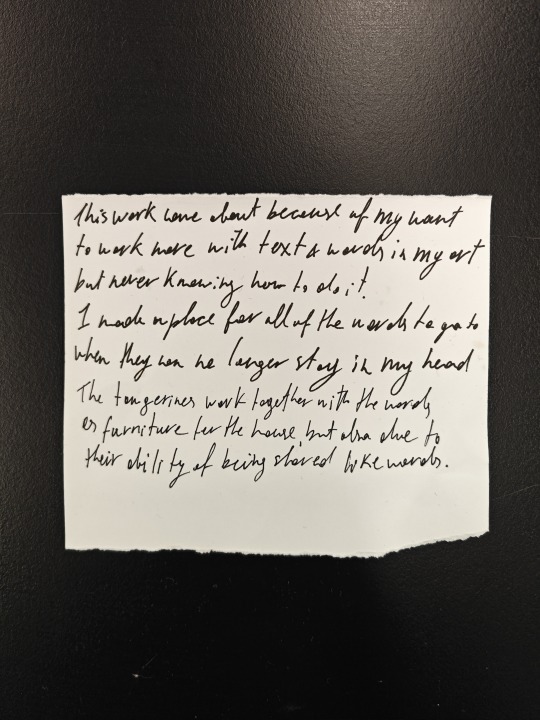 This work came about because of my want
to work more with text & words in my art
but never knowing how to do it!
I made a place for all of the words to go to
when they can no longer stay in my head
The tangerines work together with the words
as furniture for the house, but also due to
their ability of being shared like words.